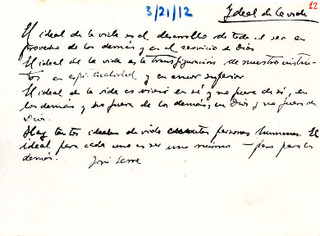 3/21/12
Ideal de la vida
12
El ideal de la vida es el desarrollo de todo el ser en
provecho de los demás y en el servicio a Dios
El ideal de la vida es la transfiguración de nuestro instin-
tos en espiritualidad y en amor superior
El ideal de la vida es vivir en sí y no fuera de sí, en
los demás y no fuera de los demás, en Dios y no fuera de
Dios.
Hay tantos ideales de vida cuantas personas humanas. El
ideal para cada uno es ser uno mismo — para los
demás.
José